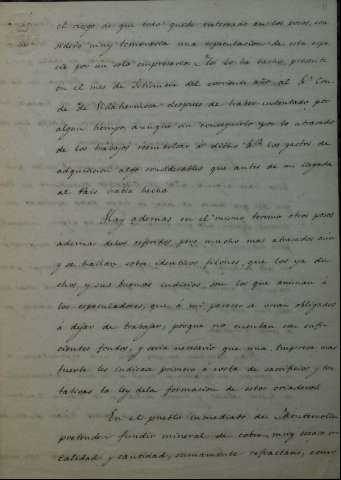 el riesgo de que todo quede enterrado en los pozos, con
sidero muy temeraria una especulacion de esta espe
cie por un solo empresario. Asi lo he hecho presente
en el mes de del corriente año al Sr. Con
de de Villahermosa despues de haber intentado por
algun tiempo, aunque sin conseguirlo por lo atrasado
de los trabajos reembolsar á dicho Sr. los gastos de
adquisicion algo considerables que antes de mi llegada
al País habia hecho.
Hay ademas en el mismo termino otros pozos
ademas de los referidos, pero mucho mas atrasados aun
y se hallan sobre identicos filones, que los ya di
chos, y sus buenos indicios, son los que animan á
los especuladores, que á mi parecer se veran obligados
á dejar de trabajar, porque no cuentan con sufi
cientes fondos, y seria necesario que una Empresa mas
fuerte les indicase primero á costa de sacrificios y ten
tativas la ley de la formacion de estos criaderos.
En el pueblo inmediato de
pretenden fundir mineral de cobre, muy escaso en
calidad y cantidad, sumamente refractario, como